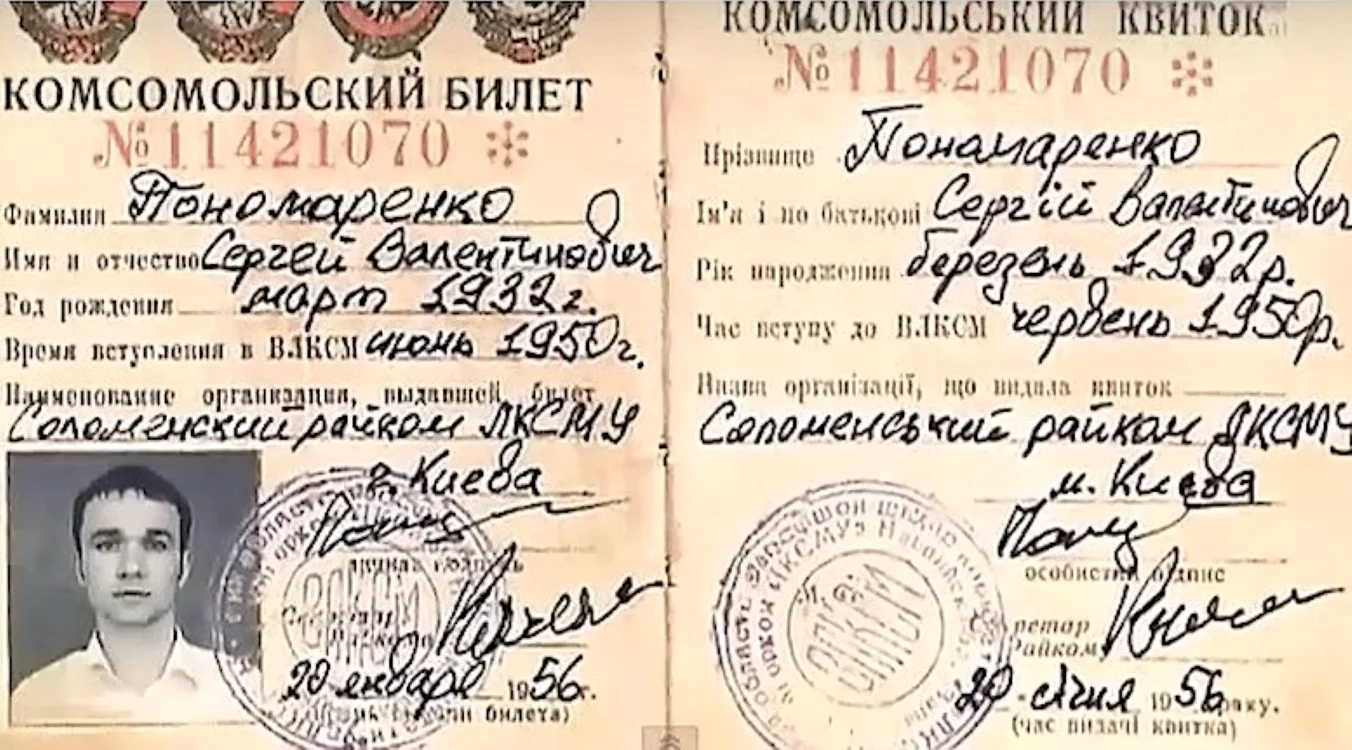 КОМСОМОЛЬСКИЙ БИЛЕТ
№11421070
Фамилия Пономаренко
Имя и отчество Сергей Валентинович
Год рождения март 1932 г.
Время вступления в ВЛКСМ июнь 1950 г.
Наименование организации, выдавшей билет
Соломенский райком ЛКСМУ
г. Киева
личная подпись
Секретарь
Райкома
20 января 1956 г.
билета)
КОМСОМОЛЬСЬКИЙ КВИТОК
№11421070
Прізвище Пономаренко
Ім'я і по батькові Сергій Валентинович
Рік народження березень 1932 р.
Час вступу до ВЛКСМ червень 1950 р.
Назва організації, що видала квиток
Соломенський райком ЛКСМУ
м. Києва
особистий підпис
ретар
Райкому
20 січня 1956 року.
(час видачі квитка)
ВЛКСМ